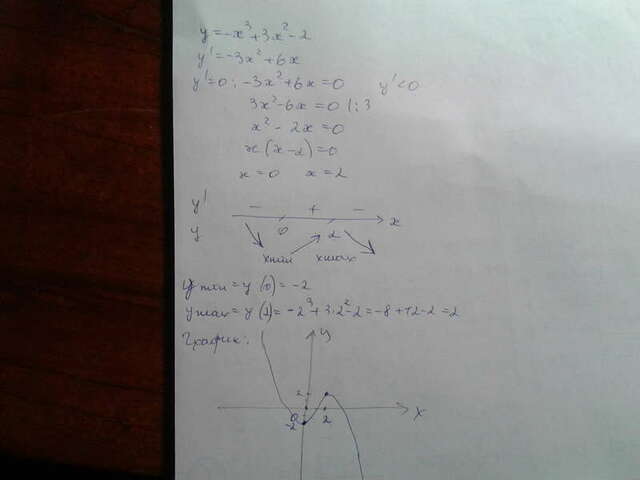 y=-x³+3x²-2
y'=-3x²+6x
y'=0: -3x²+6x=0 y'<0
3x²-6x=0 |:3
x²-2x=0
x(x-2)=0
x=0 x=2
y' - + -
y 0 2 x
xmin xmax
ymin=y(0)=-2
ymax=y(2)=-2³+3·2²-2=-8+12-2=2
График:
y
2
0 2 x
-2